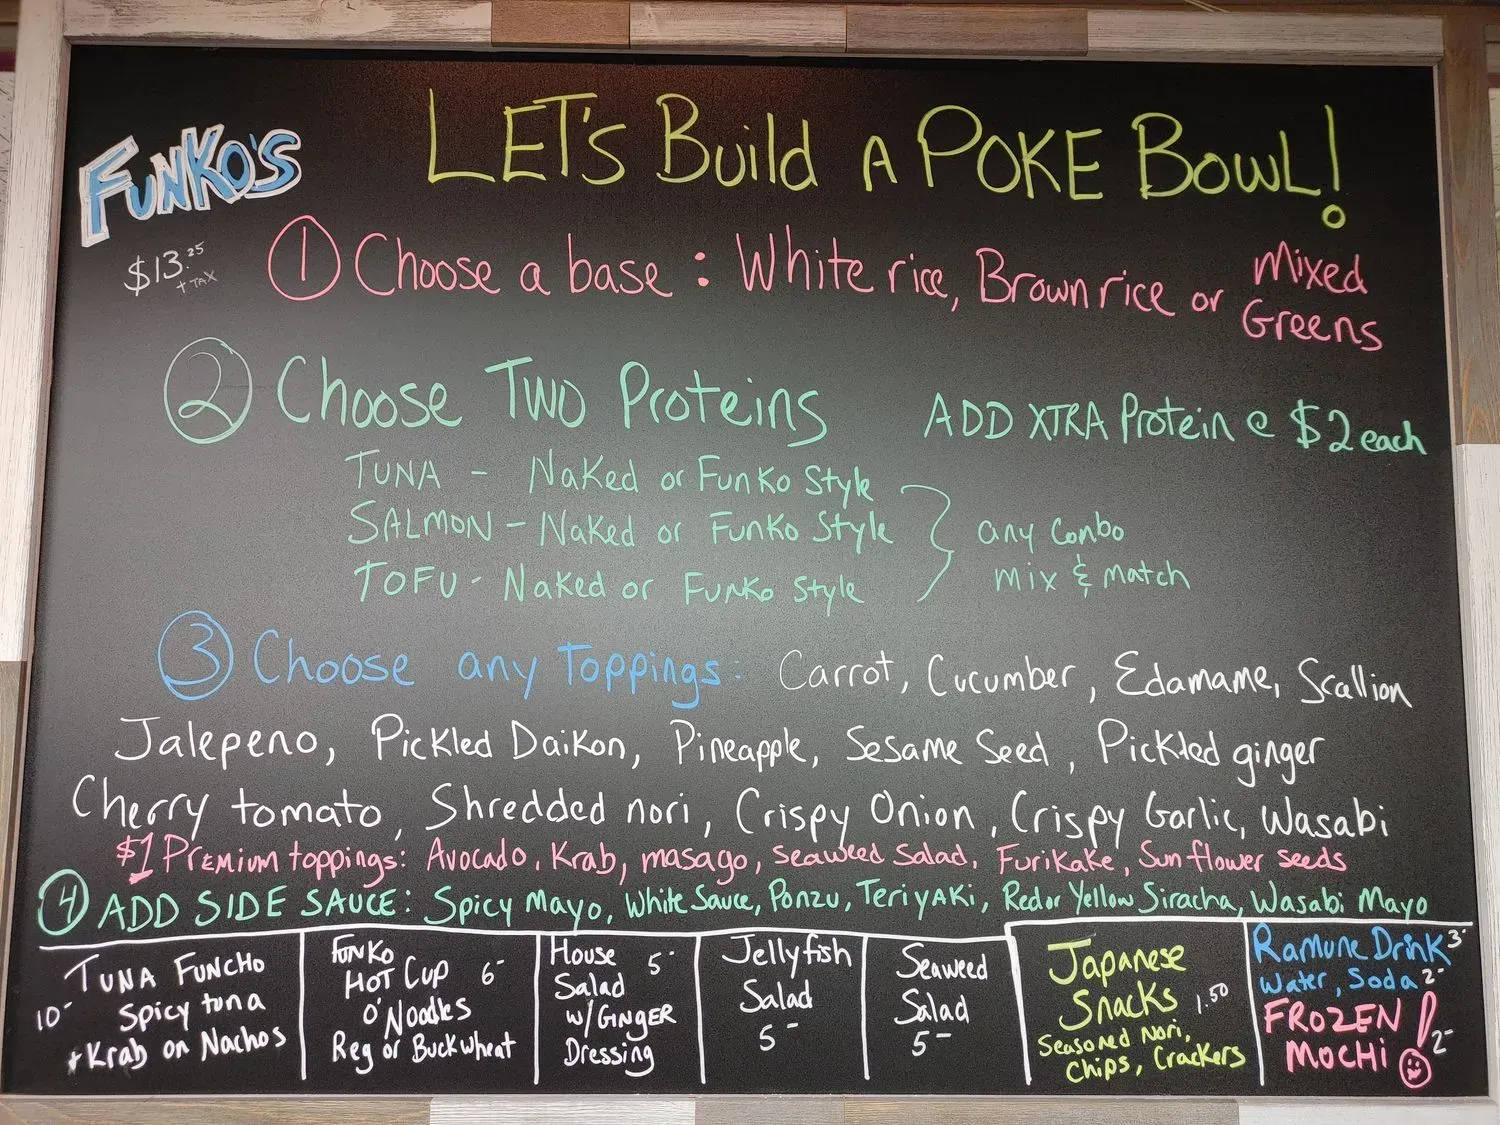 FUNKO'S
LET'S Build A POKE BOWL!
$13.25
+ TAX
1 Choose a base: White rice, Brown rice or Mixed Greens
2 Choose TWO Proteins
ADD XTRA Protein @ $2 each
TUNA - Naked or Funko Style
SALMON - Naked or Funko Style
TOFU - Naked or Funko Style
any Combo
mix & match
3 Choose any Toppings: Carrot, Cucumber, Edamame, Scallion
Jalepeno, Pickled Daikon, Pineapple, Sesame Seed, Pickled ginger
Cherry tomato, Shredded nori, Crispy Onion, Crispy Garlic, Wasabi
$1 Premium toppings: Avocado, Krab, masago, seaweed salad, Furikake, Sunflower seeds
4 ADD SIDE SAUCE: Spicy Mayo, White Sauce, Ponzu, Teriyaki, Red or Yellow Siracha, Wasabi Mayo
TUNA FUNCHO
10- Spicy tuna
+ Krab on Nachos
FUNKO
HOT CUP 6-
O' Noodles
Reg or Buckwheat
House 5-
Salad
w/ GINGER
Dressing
Jellyfish
Salad
5-
Seaweed
Salad
5-
Japanese
Snacks 1.50
Seasoned Nori,
Chips, Crackers
Ramune Drink 3-
Water, Soda 2-
FROZEN
MOCHI! 2-